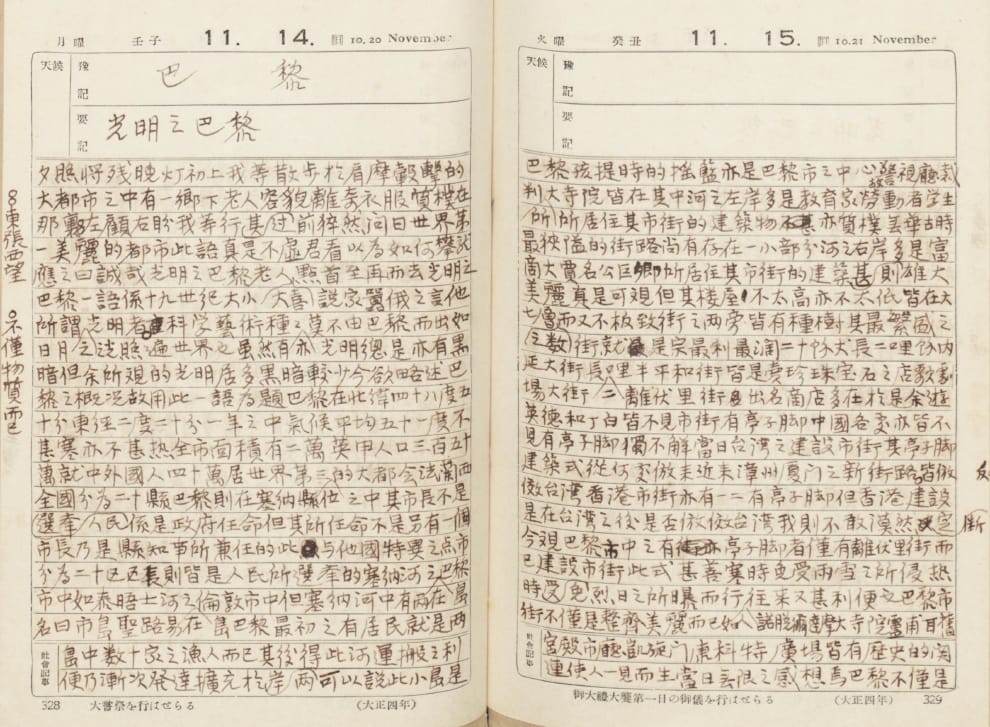 月曜 壬子 11. 14. 舊 10.20 November
天候
豫記
巴 黎
要記
光明之巴黎
夕照將残晚灯初上我等散步於肩摩轂擊的
大都市之中有一鄉下老人容貌離奇衣服質樸在
那裏左顧右盼我等行其过前猝然问曰世界第
一美麗的都市此語真是不虛君看以為如何攀就
應之曰誠哉光明之巴黎老人點首至再而去光明之
巴黎一語係十九世纪大小說家囂俄之言他
所謂光明者科学藝術種々莫不由巴黎而出如
日月之洗照遍世界也虽然有亦光明總是亦有黑
暗但余所观的光明居多黑暗較少今欲略述巴
黎之概况故用此一語為題巴黎在北緯四十八度五
十分東经二度二十分一年之中氣候平均五十一度不
甚寒亦不甚热全市面積有二萬英甲人口三百五十
萬就中外國人四十萬居世界第三的大都会法蘭西
全國分為二十縣巴黎則在塞納縣位之中其市長不是
選奉人民係是政府任命但其所任命不是另有一個
市長乃是縣知事所兼任的此与他國特異之点市
分為二十区区長則皆是人民所選奉的塞納河之巴黎
市中如泰晤士河之倫敦市中但塞納河中有两島
名曰市島聖路易在島巴黎最初之有居民就是两
島中数十家之漁人而已其後得此河運搬之利
便乃漸次發達擴充於岸两可以説此小島是
8東張西望
不僅物質而已
社會記事
328 大嘗祭を行はせらる (大正四年)
火曜 癸丑 11. 15. 舊 10.21 November
天候
豫記
要記
巴黎孩提時的摇籃亦是巴黎市之中心警視廳裁
判大寺院皆在其中河之左岸多是教育家勞動者学生
所居住其市街的建築物亦質樸去華古時
最狹隘的街路尚有存在一小部分河之右岸多是富
商大賈名公巨卿所居住其市街的建築則雄大
美麗真是可观但其楼屋不太高亦不太低皆在六
七層而又不板致街之两旁皆有種樹其最繁盛之
街就是宗最利最濶二十份丈長二哩份内
延大街長哩半平和街皆是賣珍珠宝石之店歌劇
場大街離伏里街出名商店多在於是余遊
英德和丁白皆不見市街有亭子脚中國各交亦皆不
見有亭子脚獨不解當日台湾之建設市街其亭子脚
建築式從何交倣來近来漳州厦门之新街路皆倣
傚台湾香港市街亦有一二有亭子脚但香港建設
是在台湾之後是否倣傚台湾我則不敢漠然定
断
今观巴黎市中之有亭子脚者僅有離伏里街而
已建設市街此式甚善寒時免受雨雪之所侵热
時免烈日之所暴而行往来又甚利便之巴黎市
街不僅是整齊美麗而已如大寺院盧甫耳舊
宮殿市廳凱旋门康科特廣場皆有歴史的淘
連使人一見而生當日無限之感想焉巴黎不僅是
社會記事
御大禮大饗第一日の御儀を行はせらる (大正四年) 329